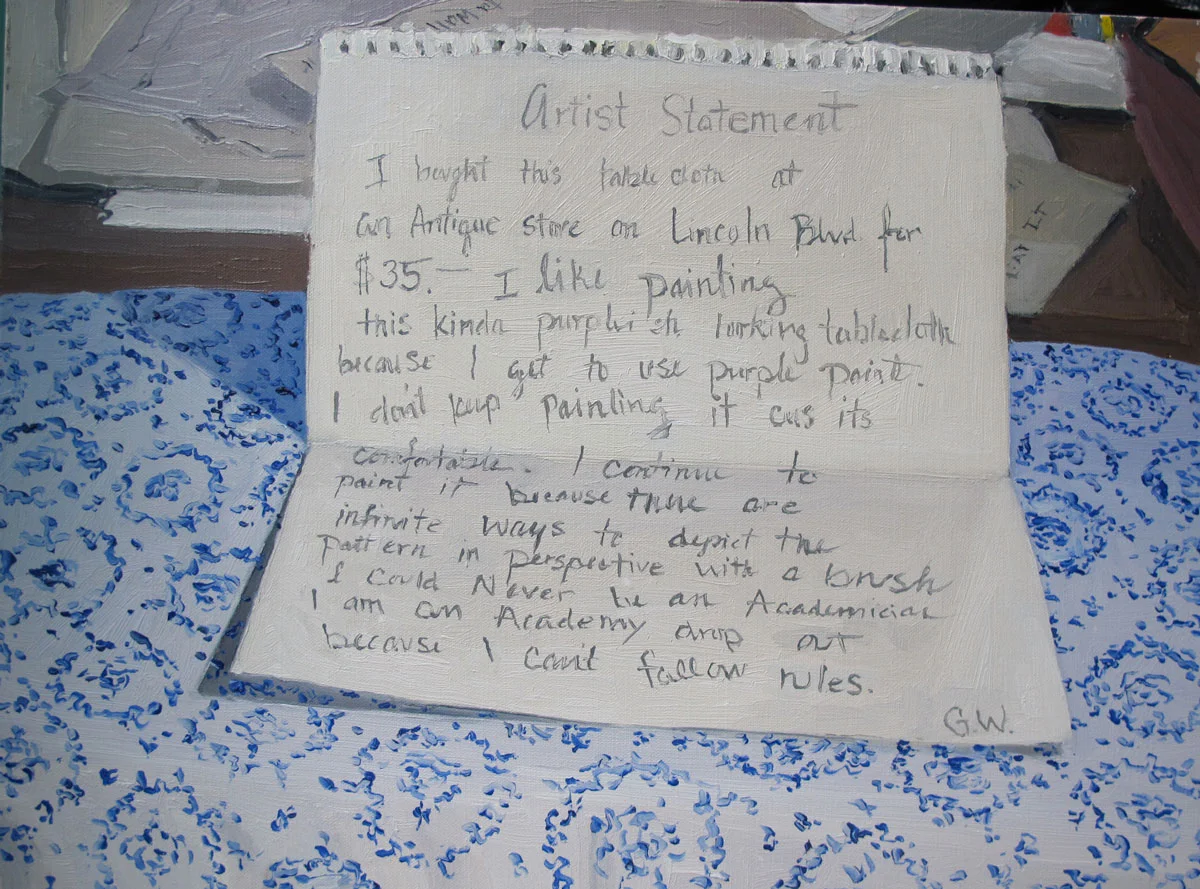 Artist Statement
I bought this tablecloth at
an Antique store on Lincoln Blvd for
$35.— I like painting
this kinda purplish looking tablecloth
because I get to use purple paint.
I don't keep painting it cus its
comfortable. I continue to
paint it because there are
infinite ways to depict the
pattern in perspective with a brush
I could Never be an Academician
I am an Academy drop out
because I can't follow rules.
G.W.